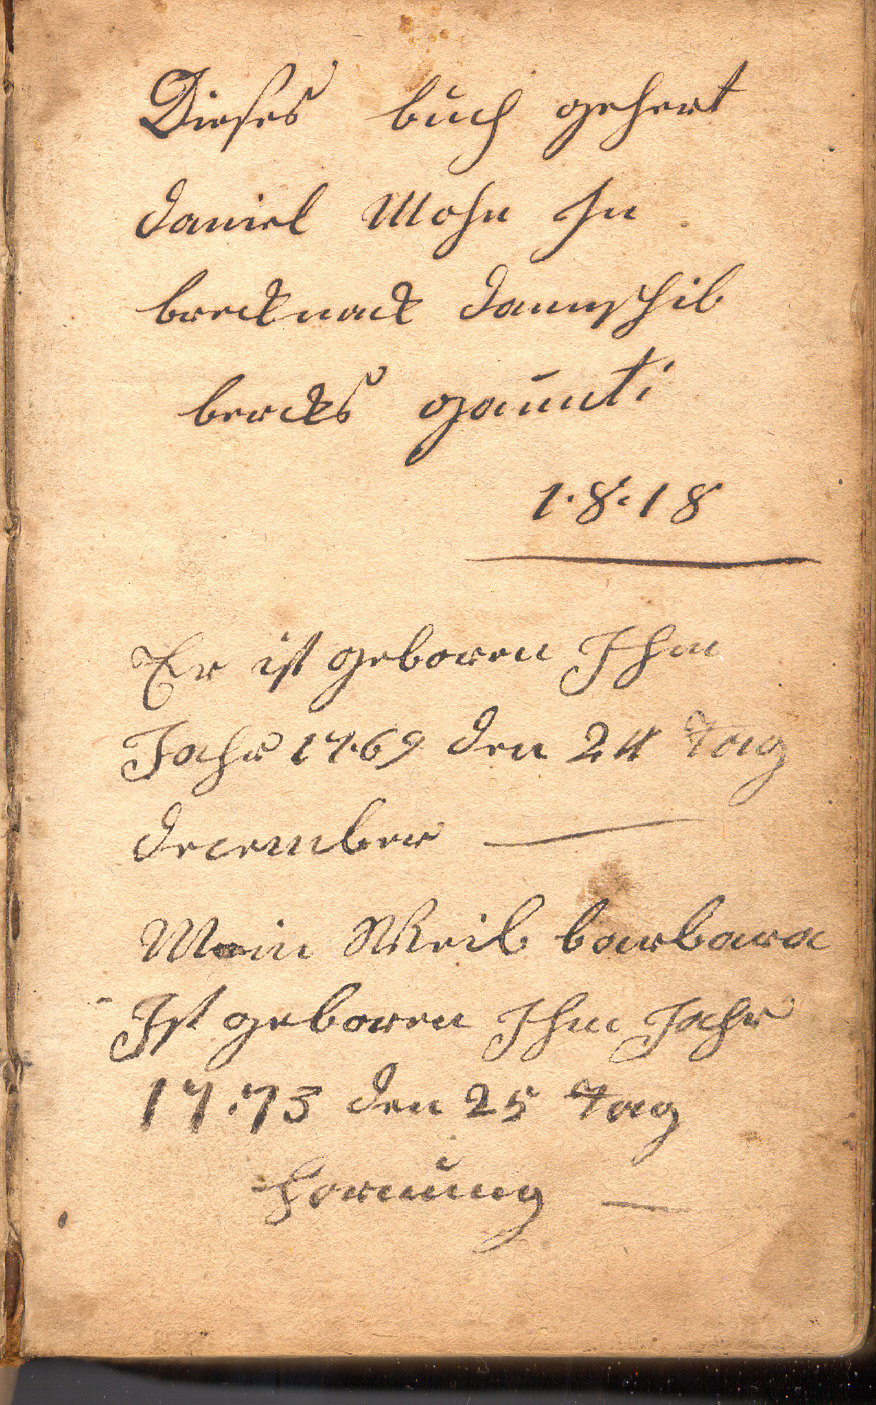 Dieses buch gehert
daniel Mohn In
brecknack daunschib
bercks gaunti
1.8.18
Er ist geboren Ihm
Jahr 17.69 den 24 tag
december
Mein Weib barbara
Ist geboren Ihm Jahr
17.73 den 25 tag
hornung